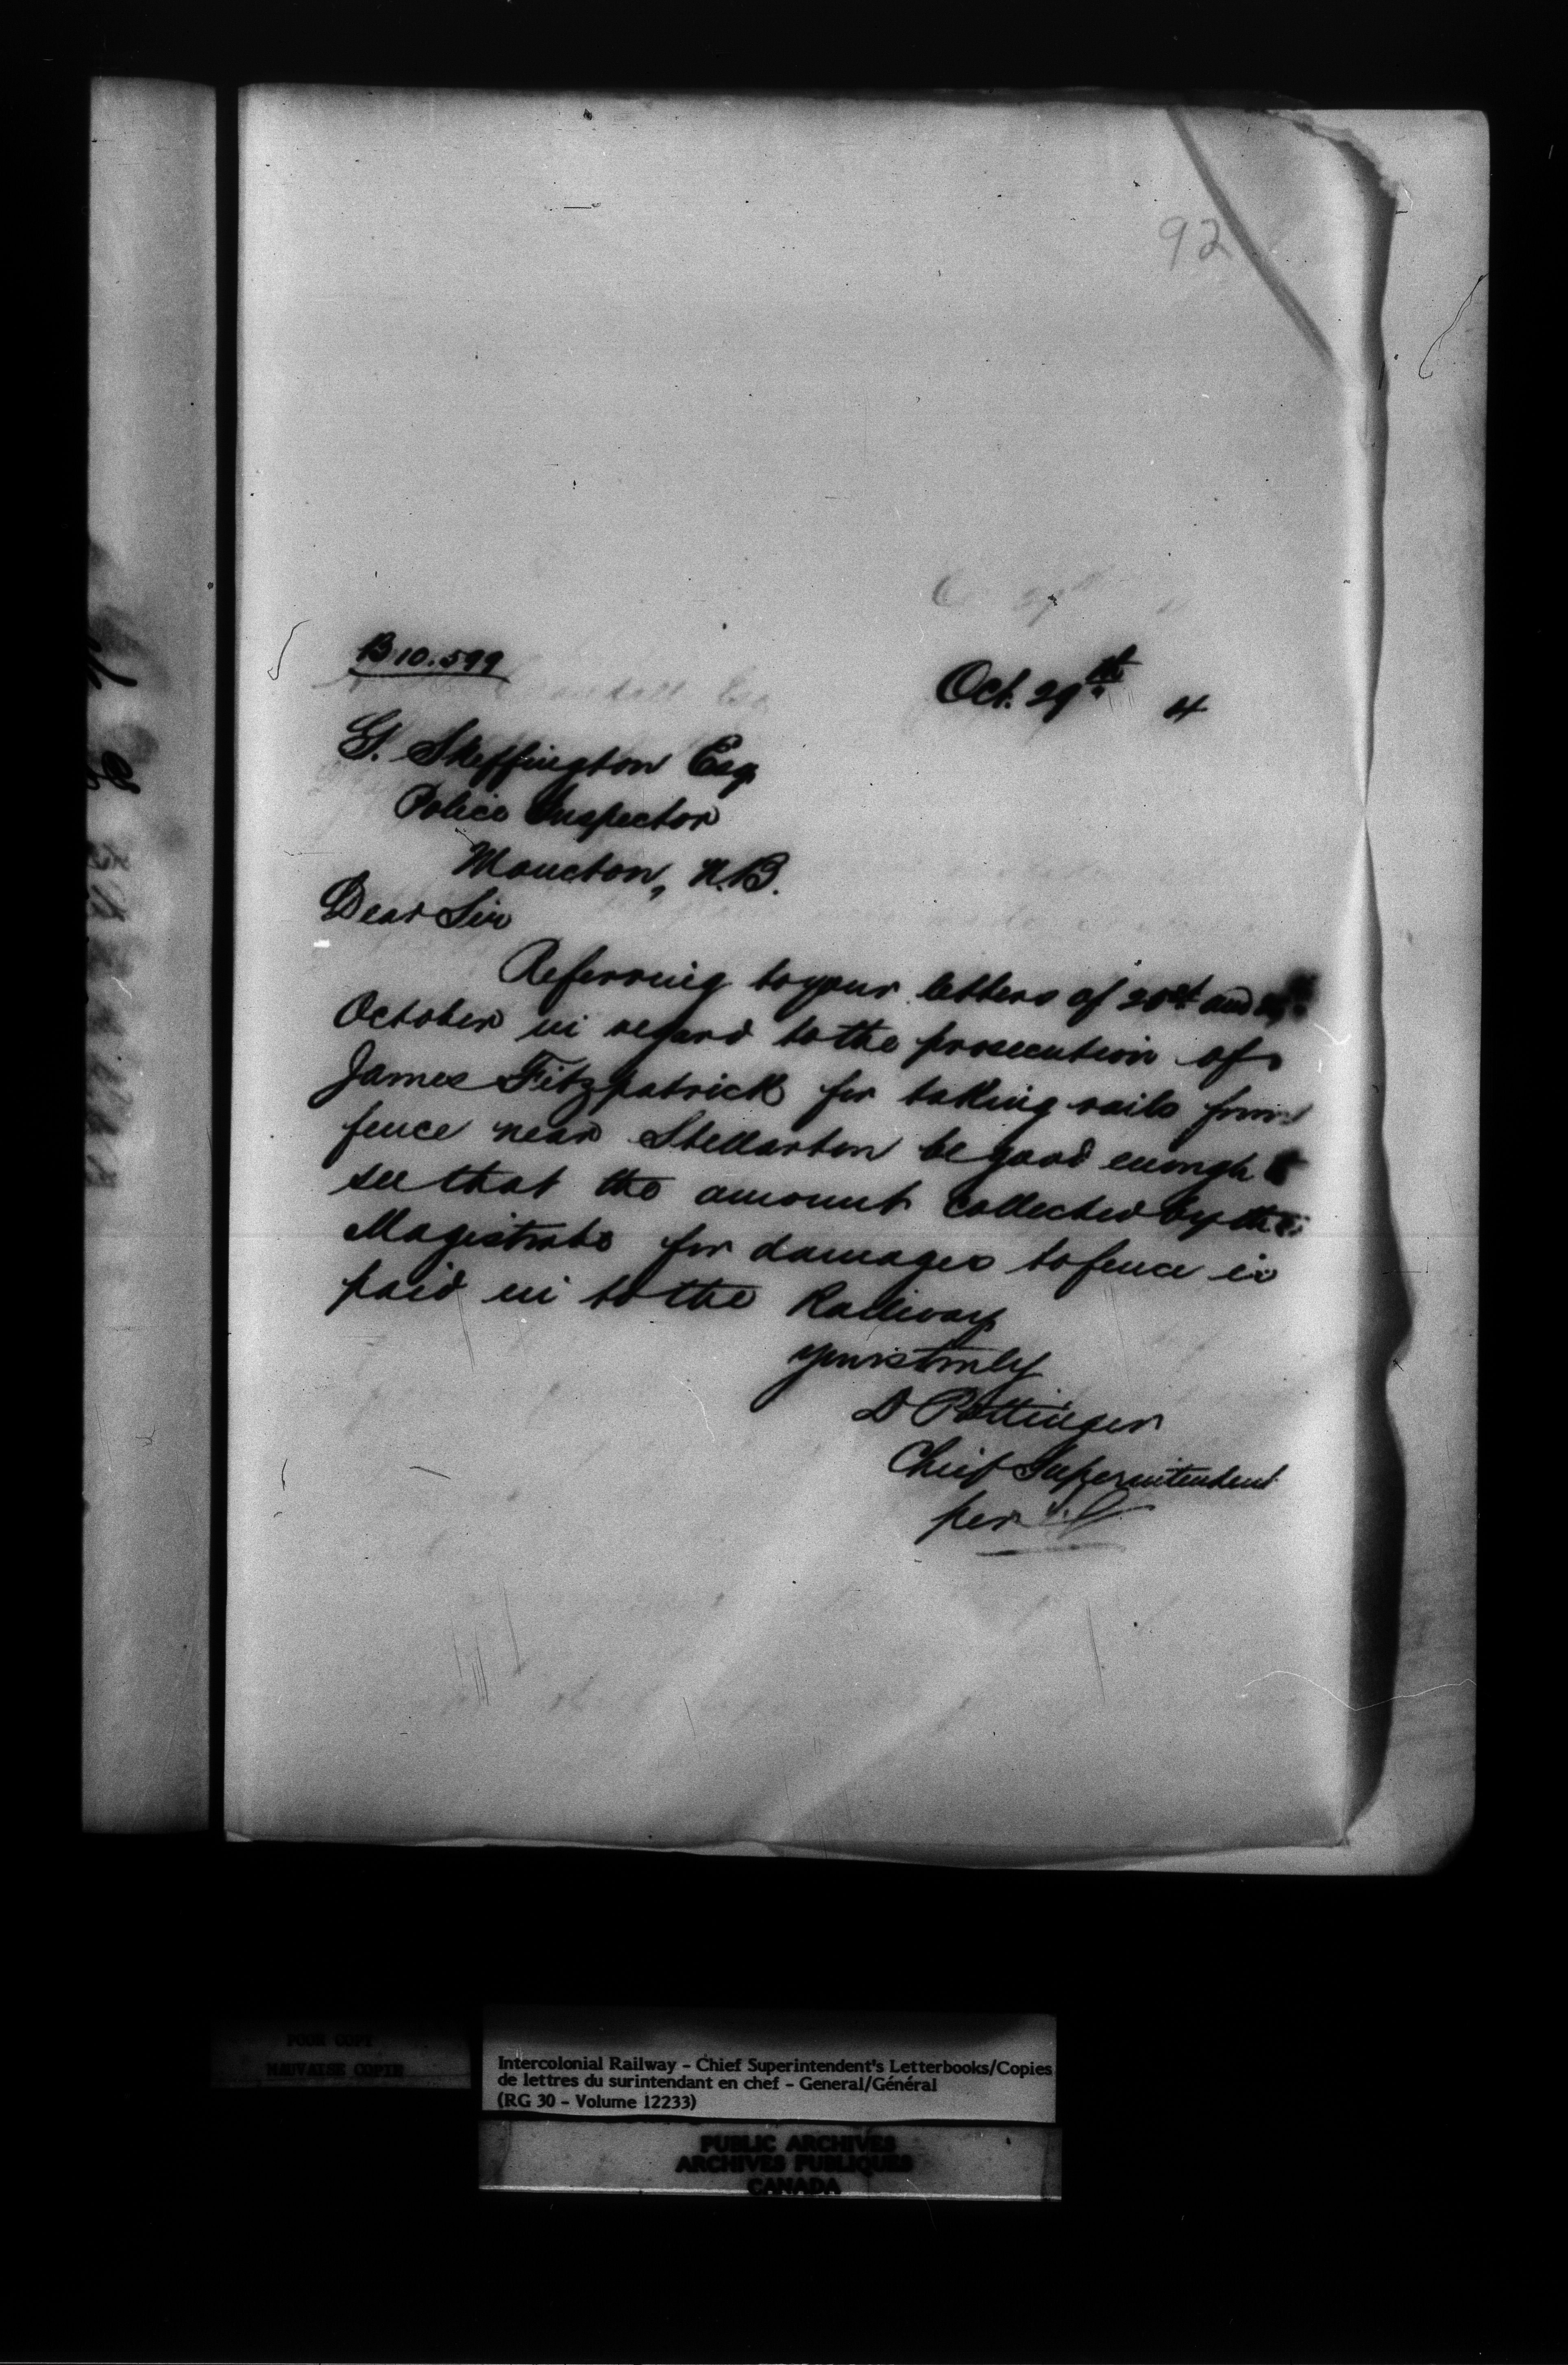 92
B 10.599
Oct. 29th 4
G. Skeffington Esq
Police Inspector
Moncton, N.B.
Dear Sir
Referring to your letters of and
October in regard to the prosecution of
James Fitzpatrick for taking rails from
fence near Stellarton be good enough to
see that the amount collected by the
Magistrate for damages to fence is
paid in to the Railway
Yours truly
D Pottinger
Chief Superintendent
per
POOR COPY
MAUVAISE COPIE
Intercolonial Railway – Chief Superintendent's Letterbooks/Copies
de lettres du surintendant en chef – General/Général
(RG 30 – Volume 12233)
PUBLIC ARCHIVES
ARCHIVES PUBLIQUES
CANADA